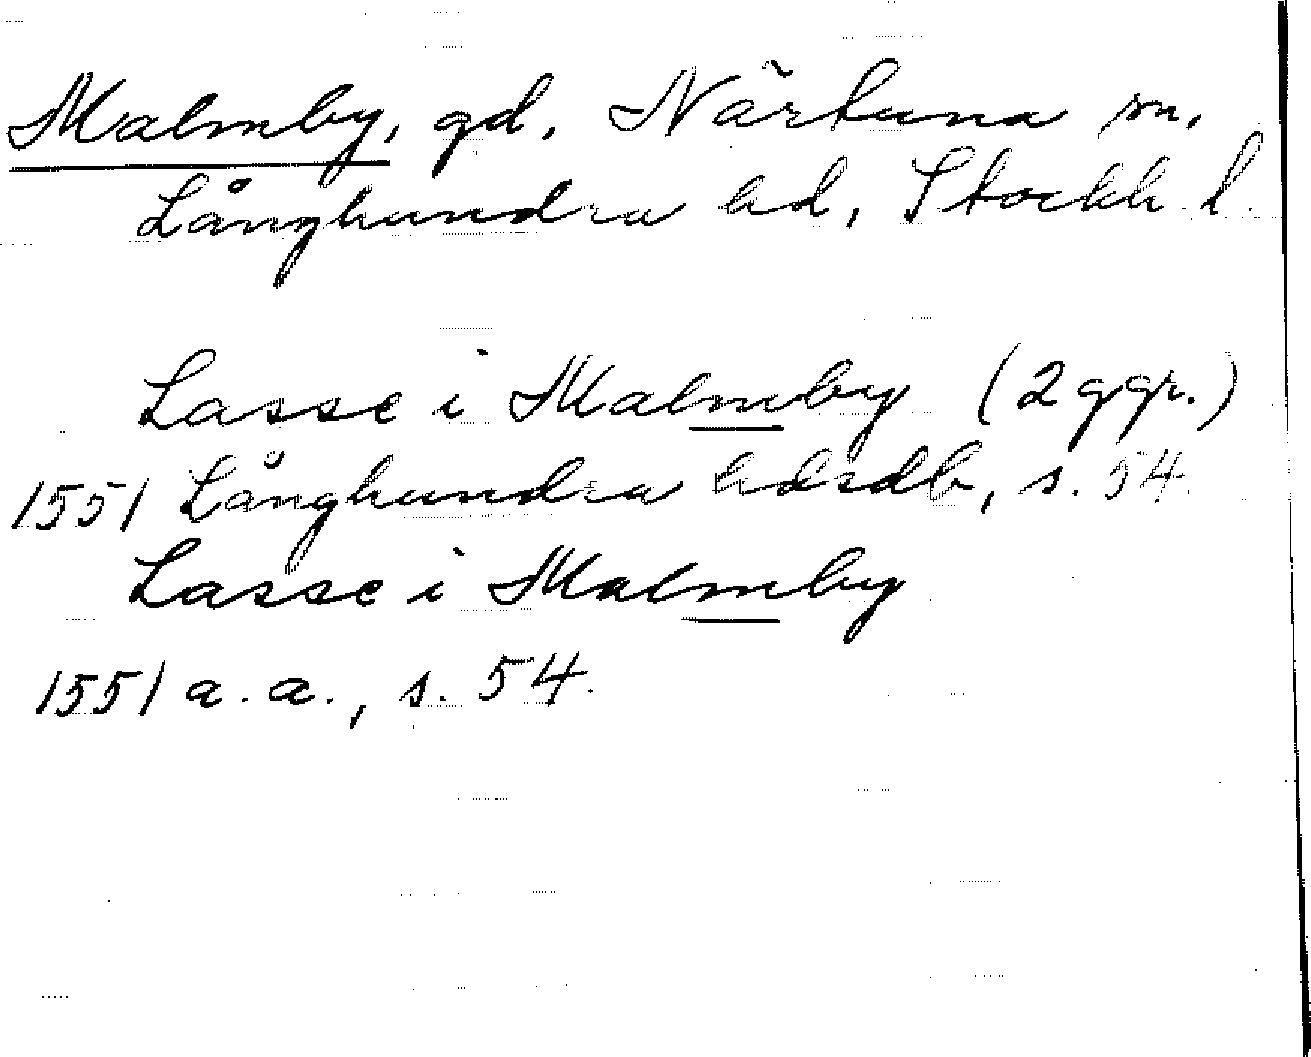 Malmby, gd, Närtuna sn,
Långhundra hd, Stockh. l.
Lasse i Malmby (2 ggr.)
1551 Långhundra hdsdb, s. 54.
Lasse i Malmby
1551 a.a., s. 54.